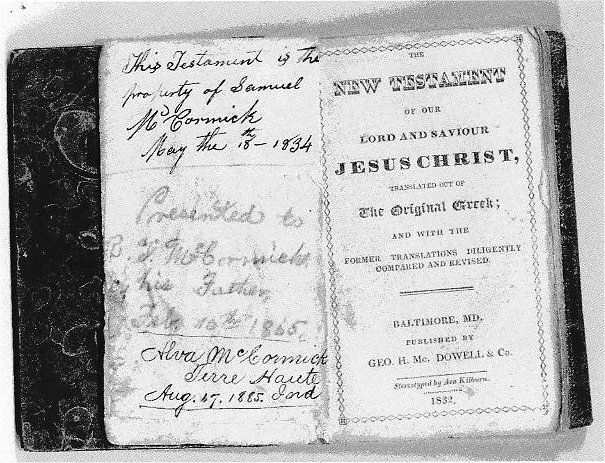 This Testament is the
property of Samuel
McCormick
May the 18th – 1834
Presented to
B. F. McCormick
by his Father,
Feb. 10th 1865,
Alva McCormick
Terre Haute
Aug. 17, 1885. Ind
THE
NEW TESTAMENT
OF OUR
LORD AND SAVIOUR
JESUS CHRIST,
TRANSLATED OUT OF
The Original Greek;
AND WITH THE
FORMER TRANSLATIONS DILIGENTLY
COMPARED AND REVISED.
BALTIMORE, MD.
PUBLISHED BY
GEO. H. Mc. DOWELL & Co.
Stereotyped by Asa Kilburn.
1832.